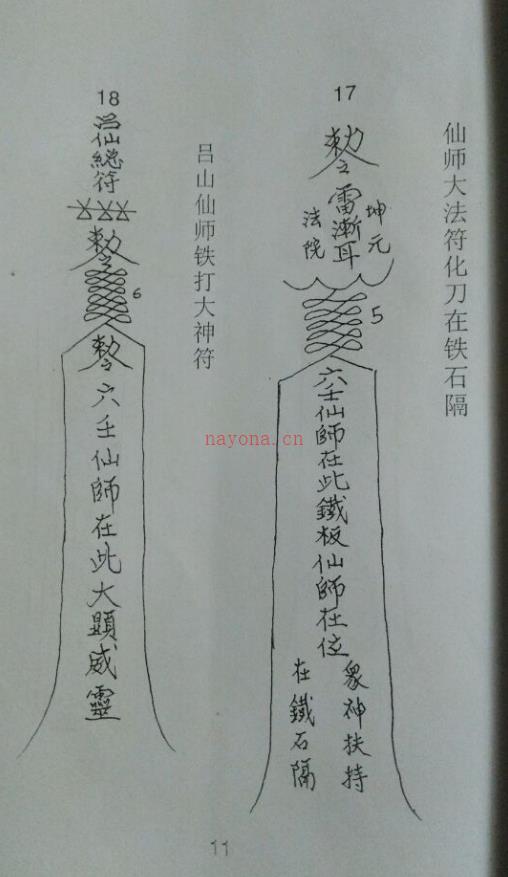 仙师大法符化刀在铁石隔
17
勅令
雷漸耳
坤元
法院
5
六壬仙師在此鐵板仙師在位
眾神扶持
在鐵石隔
吕山仙师铁打大神符
18
仙總符
勅令
6
勅令
六壬仙師在此大顕威靈
nayona.cn
11